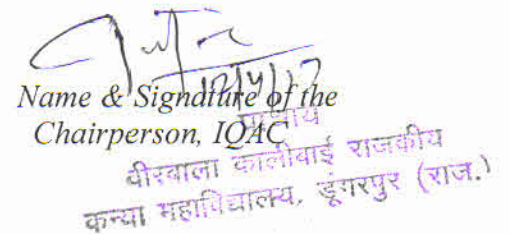 12/4/17
Name & Signature of the
Chairperson, IQAC
प्राचार्य
वीरबाला कालीबाई राजकीय
कन्या महाविद्यालय, डूंगरपुर (राज.)